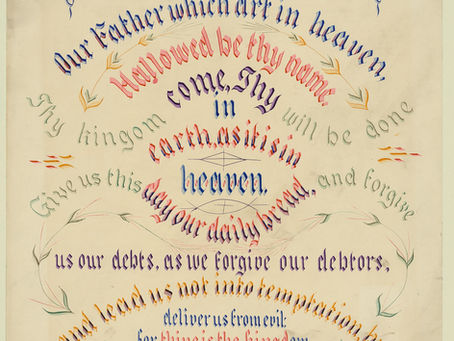 Our Father which art in heaven,
Hallowed be thy name.
Thy kingom come, Thy will be done
in
earth, as it is in
heaven.
Give us this day our daily bread, and forgive
us our debts, as we forgive our debtors,
and lead us not into temptation,
deliver us from evil:
for thine is the kingdom